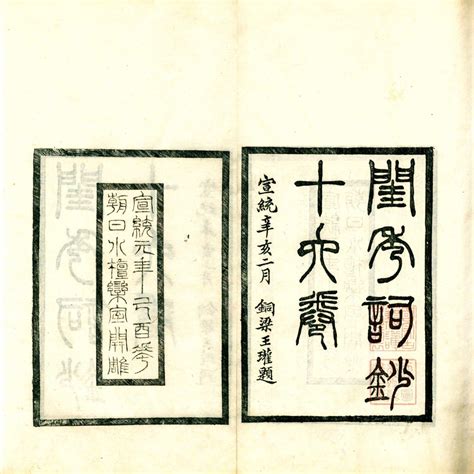 閨秀詞鈔
十六卷
宣統辛亥二月 銅梁王瓘題
宣統元年己酉華
朝日小檀欒室開雕